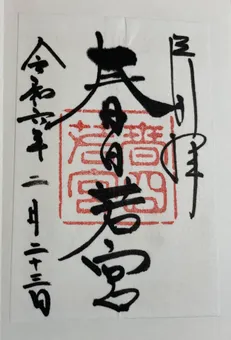 春日若宮
令和六年二月二十三日
春日
若宮